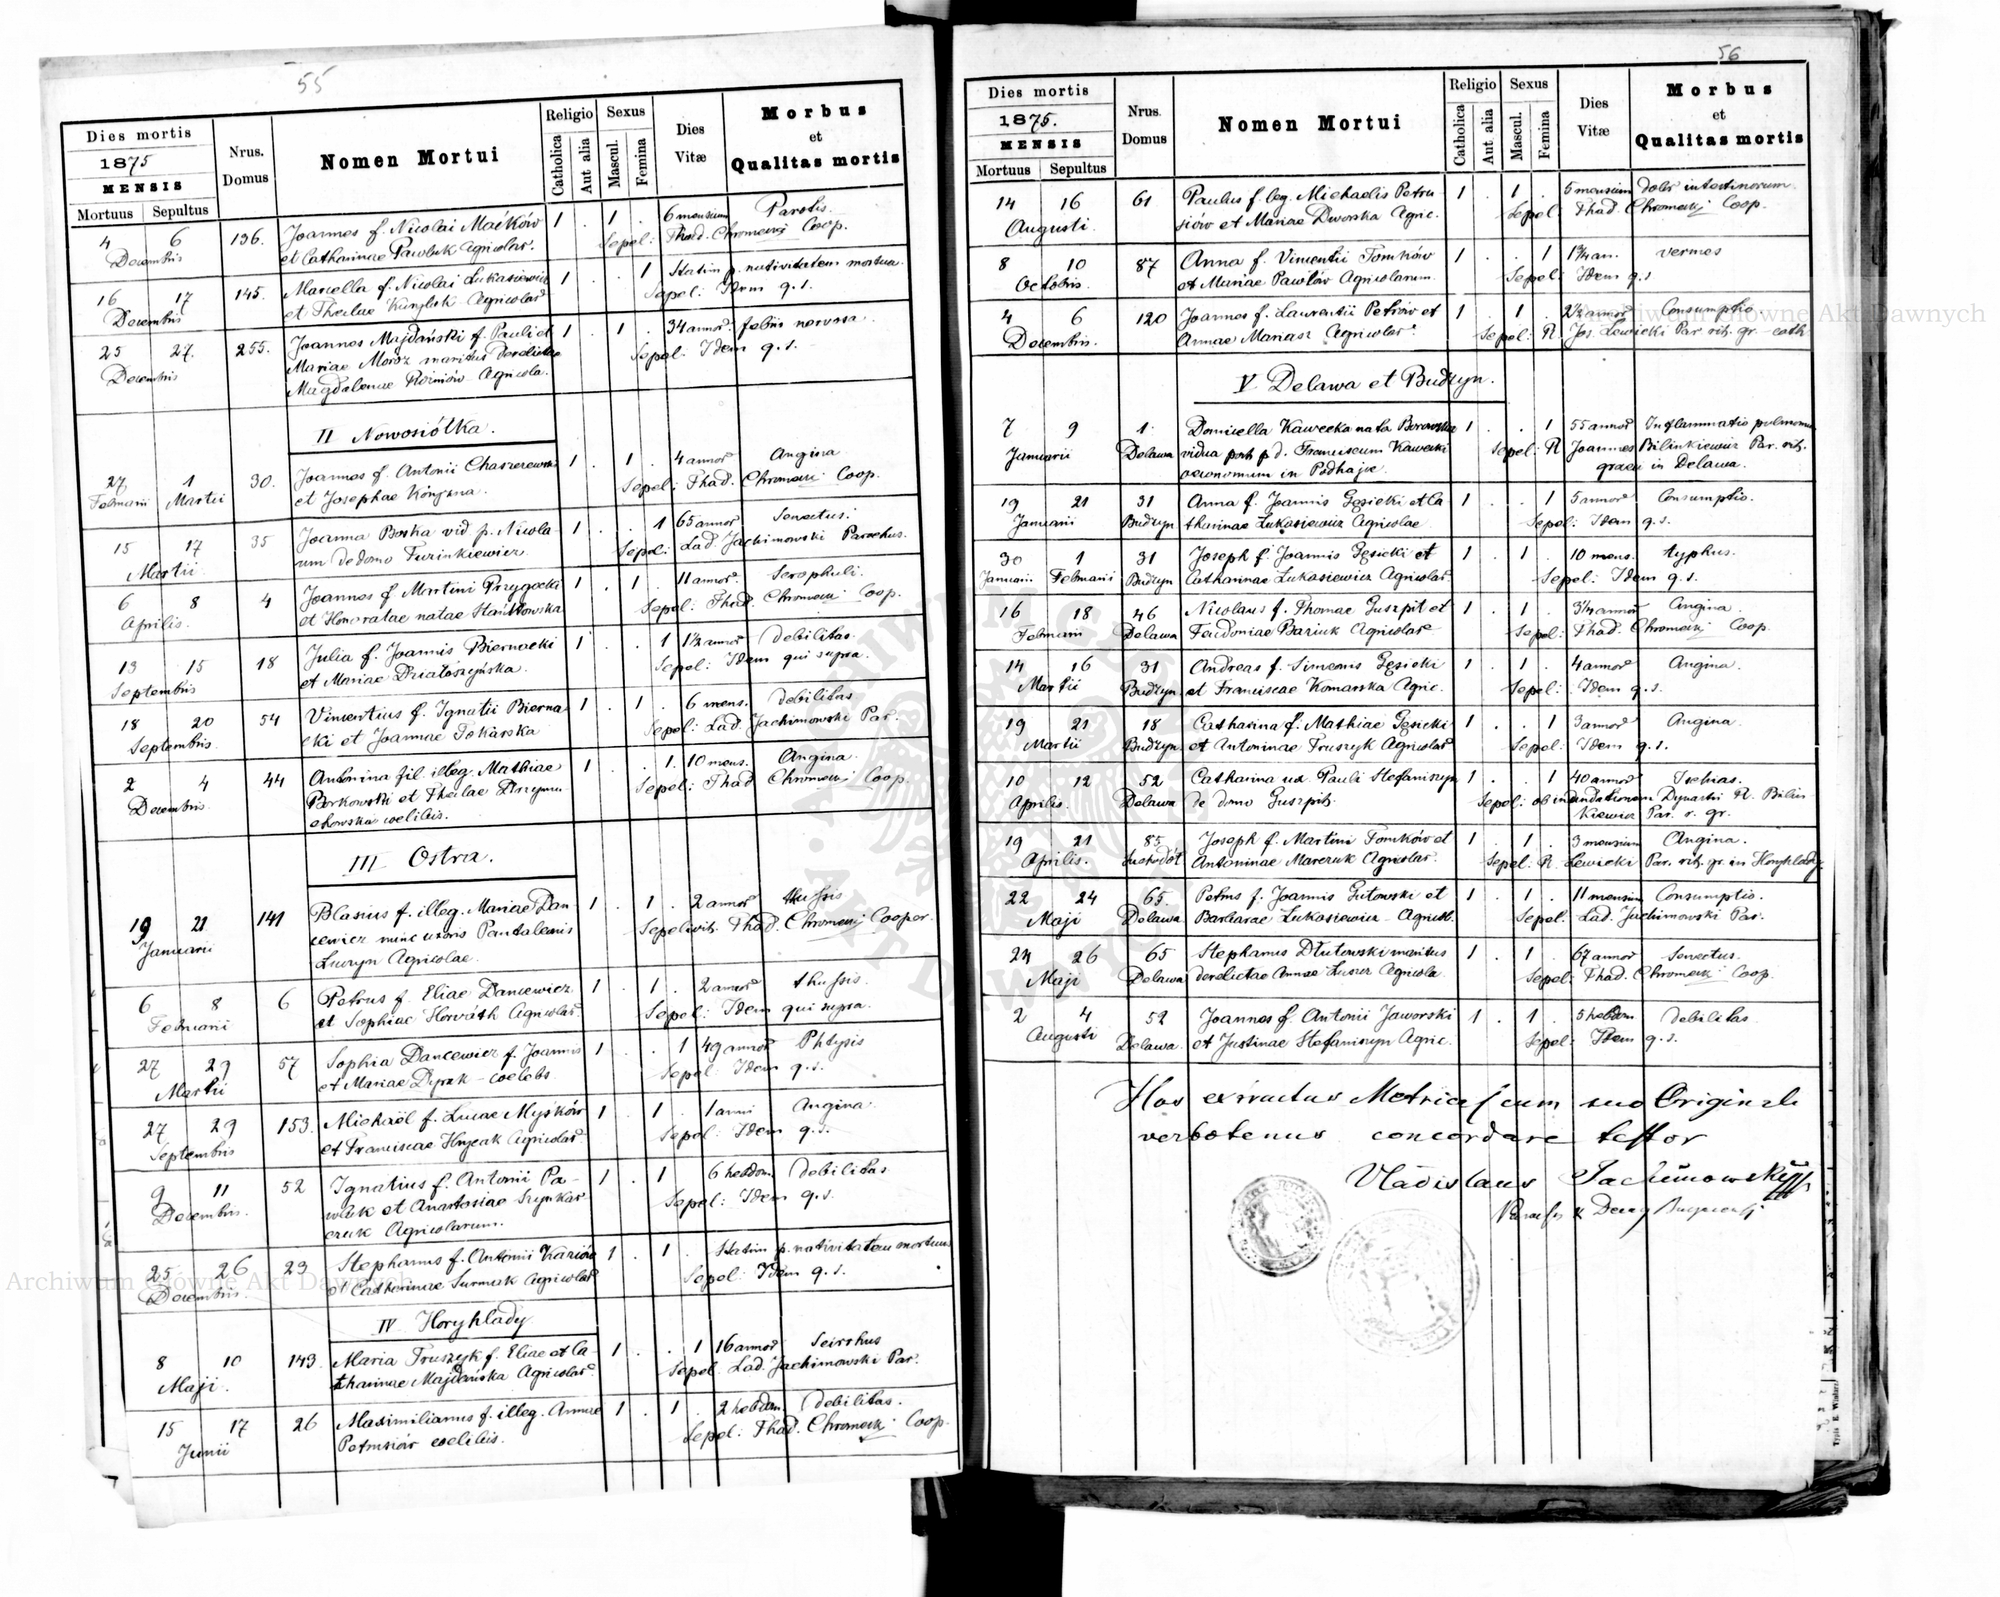 55
Dies mortis
1875
MENSIS
Mortuus Sepultus
Nrus. Domus
Nomen Mortui
Religio
Catholica
Aut alia
Sexus
Mascul.
Femina
Dies Vitæ
Morbus
et
Qualitas mortis
4 6 136. Joannes f. Nicolai Maćków 1 . 1 . 6 mensium Parotis.
Decembris et Catharinae Pawluk Agricolar. Sepel: Thad. Chromecki Coop.
16 17 145. Marcella f. Nicolai Lukasiewicz 1 . . 1 Statim p. nativitatem mortua.
Decembris et Theclae Agricolar. Sepel: Idem q. s.
25 27. 255. Joannes Majdański f. Pauli et 1 . 1 . 34 annor. febris nervosa
Decembris Mariae Moroz maritus derelictae Sepel: Idem q. s.
Magdalenae Agricola.
II Nowosiółka.
27 1 30. Joannes f. Antonii 1 . 1 . 4 annor Angina
Februarii Martii et Josephae Sepel: Thad. Chromecki Coop.
15 17 35 Joanna Boska vid p. Nicola 1 . . 1 65 annor Senectus.
Martii um de domo Turinkiewicz Sepel: Lad. Jachimowski Parochus.
6 8 4 Joannes f Martini Przygocki 1 . 1 . 11 annor. Scrophuli.
Aprilis. et Honoratae natae Sepel: Thad. Chromecki Coop.
13 15 18 Julia f. Joannis Biernacki 1 . . 1 1½ annor Debilitas.
Septembris et Mariae Działoszyńska. Sepel: Idem qui supra.
18 20 54 Vincentius f. Ignatii Bierna 1 . 1 . 6 mens. Debilitas
Septembris. cki et Joannae Tokarska Sepel: Lad. Jachimowski Par.
2 4 44 Antonina fil. illeg. Mathiae 1 . . 1. 10 mens. Angina.
Decembris. Borkowski et Theclae Sepel: Thad Chromecki Coop.
chowska coelibis.
III Ostra.
19 21 141 Blasius f. illeg. Mariae Dan 1 . 1 . 2 annor thussis
Januarii cewicz nunc uxoris Pantaleonis Sepelivit. Thad. Chromecki Cooper.
Agricolae.
6 8 6 Petrus f. Eliae Dancewicz 1 . 1 . 2 annor thussis.
Februarii et Sophiae Horváth Agricolar. Sepel: Idem qui supra.
27 29 57 Sophia Dancewicz f. Joannis 1 . . 1 49 annor Phtysis
Martii et Mariae – coelebs Sepel: Idem q. s.
27 29 153. Michaël f. Lucae Myśków 1 . 1 . 1 anni Angina
Septembris et Franciscae Agricolar. Sepel: Idem q. s.
9 11 52 Ignatius f. Antonii Pa- 1 . 1 6 hebdom. Debilitas
Decembris. wluk et Anastasiae Szynkar Sepel: Idem q. s.
czuk Agricolarum.
25 26 23 Stephanus f. Antonii 1 . 1 . Statim p. nativitatem mortuus
Decembris. et Catharinae Surmak Agricolar Sepel: Idem q. s.
IV Horyhlady
8 10 143. Maria Truszyk f. Eliae et Ca 1 . . 1 16 annor Scirrhus
Maji. tharinae Majdańska Agricolar. Sepel. Lad. Jachimowski Par.
15 17 26 Maximilianus f. illeg. Annae 1 . 1 . 2 hebdom. Debilitas.
Junii Petrusiów coelibis. Sepel: Thad. Chromecki Coop.
56
Dies mortis
1875.
MENSIS
Mortuus Sepultus
Nrus. Domus
Nomen Mortui
Religio
Catholica
Aut alia
Sexus
Mascul.
Femina
Dies Vitæ
Morbus
et
Qualitas mortis
14 16 61 Paulus f. leg. Michaelis Petru 1 . 1 . 5 mensium dolor intestinorum.
Augusti. siów et Mariae Dworska Agric. Sepel: Thad. Chromecki Coop.
8 10 87 Anna f. Vincentii Tomków 1 . . 1 1¾ an. vermes
Octobris. et Mariae Pawłów Agricolarum. Sepel: Idem q. s.
4 6 120 Joannes f. Laurentii Petrów et 1 . 1 . 2½ annor Consumptio.
Decembris. Annae Mariasz Agricolar. Sepel: R. Jos. Lewicki Par rit. gr. cath.
V Delawa et Budzyn.
7 9 1. Domicella Kawecka nata Borowska 1 . . 1 55 annor Inflammatio pulmonum
Januarii Delawa vidua post p d. Franciscum Kawecki Sepel: R Joannes Bilinkiewicz Par. rit.
oeconomum in Podhajce. graeci in Delawa.
19 21 31 Anna f. Joannis Gęsicki et Ca 1 . . 1 5 annor Consumptio.
Januarii Budzyn tharinae Lukasiewicz Agricolae Sepel: Idem q. s.
30 1 31 Joseph f. Joannis Gęsicki et 1 . 1 . 10 mens. typhus.
Januarii Februarii Budzyn Catharinae Lukasiewicz Agricolar. Sepel: Idem q. s.
16 18 46 Nicolaus f. Thomae Guszpit et 1 . 1 . 3¼ annor Angina.
Februarii Delawa Feudoniae Bariuk Agricolar Sepel: Thad. Chromecki Coop.
14 16 31 Andreas f. Simeonis Gęsicki 1 . 1 . 4 annor Angina.
Martii Budzyn et Franciscae Komarska Agric. Sepel: Idem q. s.
19 21 18 Catharina f. Mathiae Gęsicki 1 . . 1 3 annor Angina.
Martii Budzyn et Antoninae Truszyk Agricolar Sepel: Idem q. s.
10 12 52 Catharina ux. Pauli Stefaniszyn 1 . . 1 40 annor
Aprilis. Delawa de domo Guszpit. Sepel: ob inundationem R. Bilin
kiewicz Par. r. gr.
19 21 85 Joseph f. Martini Tomków et 1 . 1 . 3 mensium Angina.
Aprilis. Antoninae Marczuk Agricolar. Sepel: R. Lewicki Par. rit. gr. in Horyhlady
22 24 65. Petrus f. Joannis Gutowski et 1 . 1 . 11 mensium Consumptio.
Maji Delawa Barbarae Lukasiewicz – Agricol. Sepel: Lad. Jachimowski Par.
24 26 65 Stephanus Dłutowski maritus 1 . 1 . 67 annor Senectus.
Maji Delawa derelictae Annae Agricola. Sepel: Thad. Chromecki Coop.
2 4 52 Joannes f. Antonii Jaworski 1 . 1 . 5 hebdom Debilitas
Augusti Delawa. et Justinae Stefaniszyn Agric. Sepel: Idem q. s.
Hos extractus Metrices cum suo Originali
verbotenus concordare testor
Vladislaus Jachimowski
Archiwum Główne Akt Dawnych
Archiwum Główne Akt Dawnych